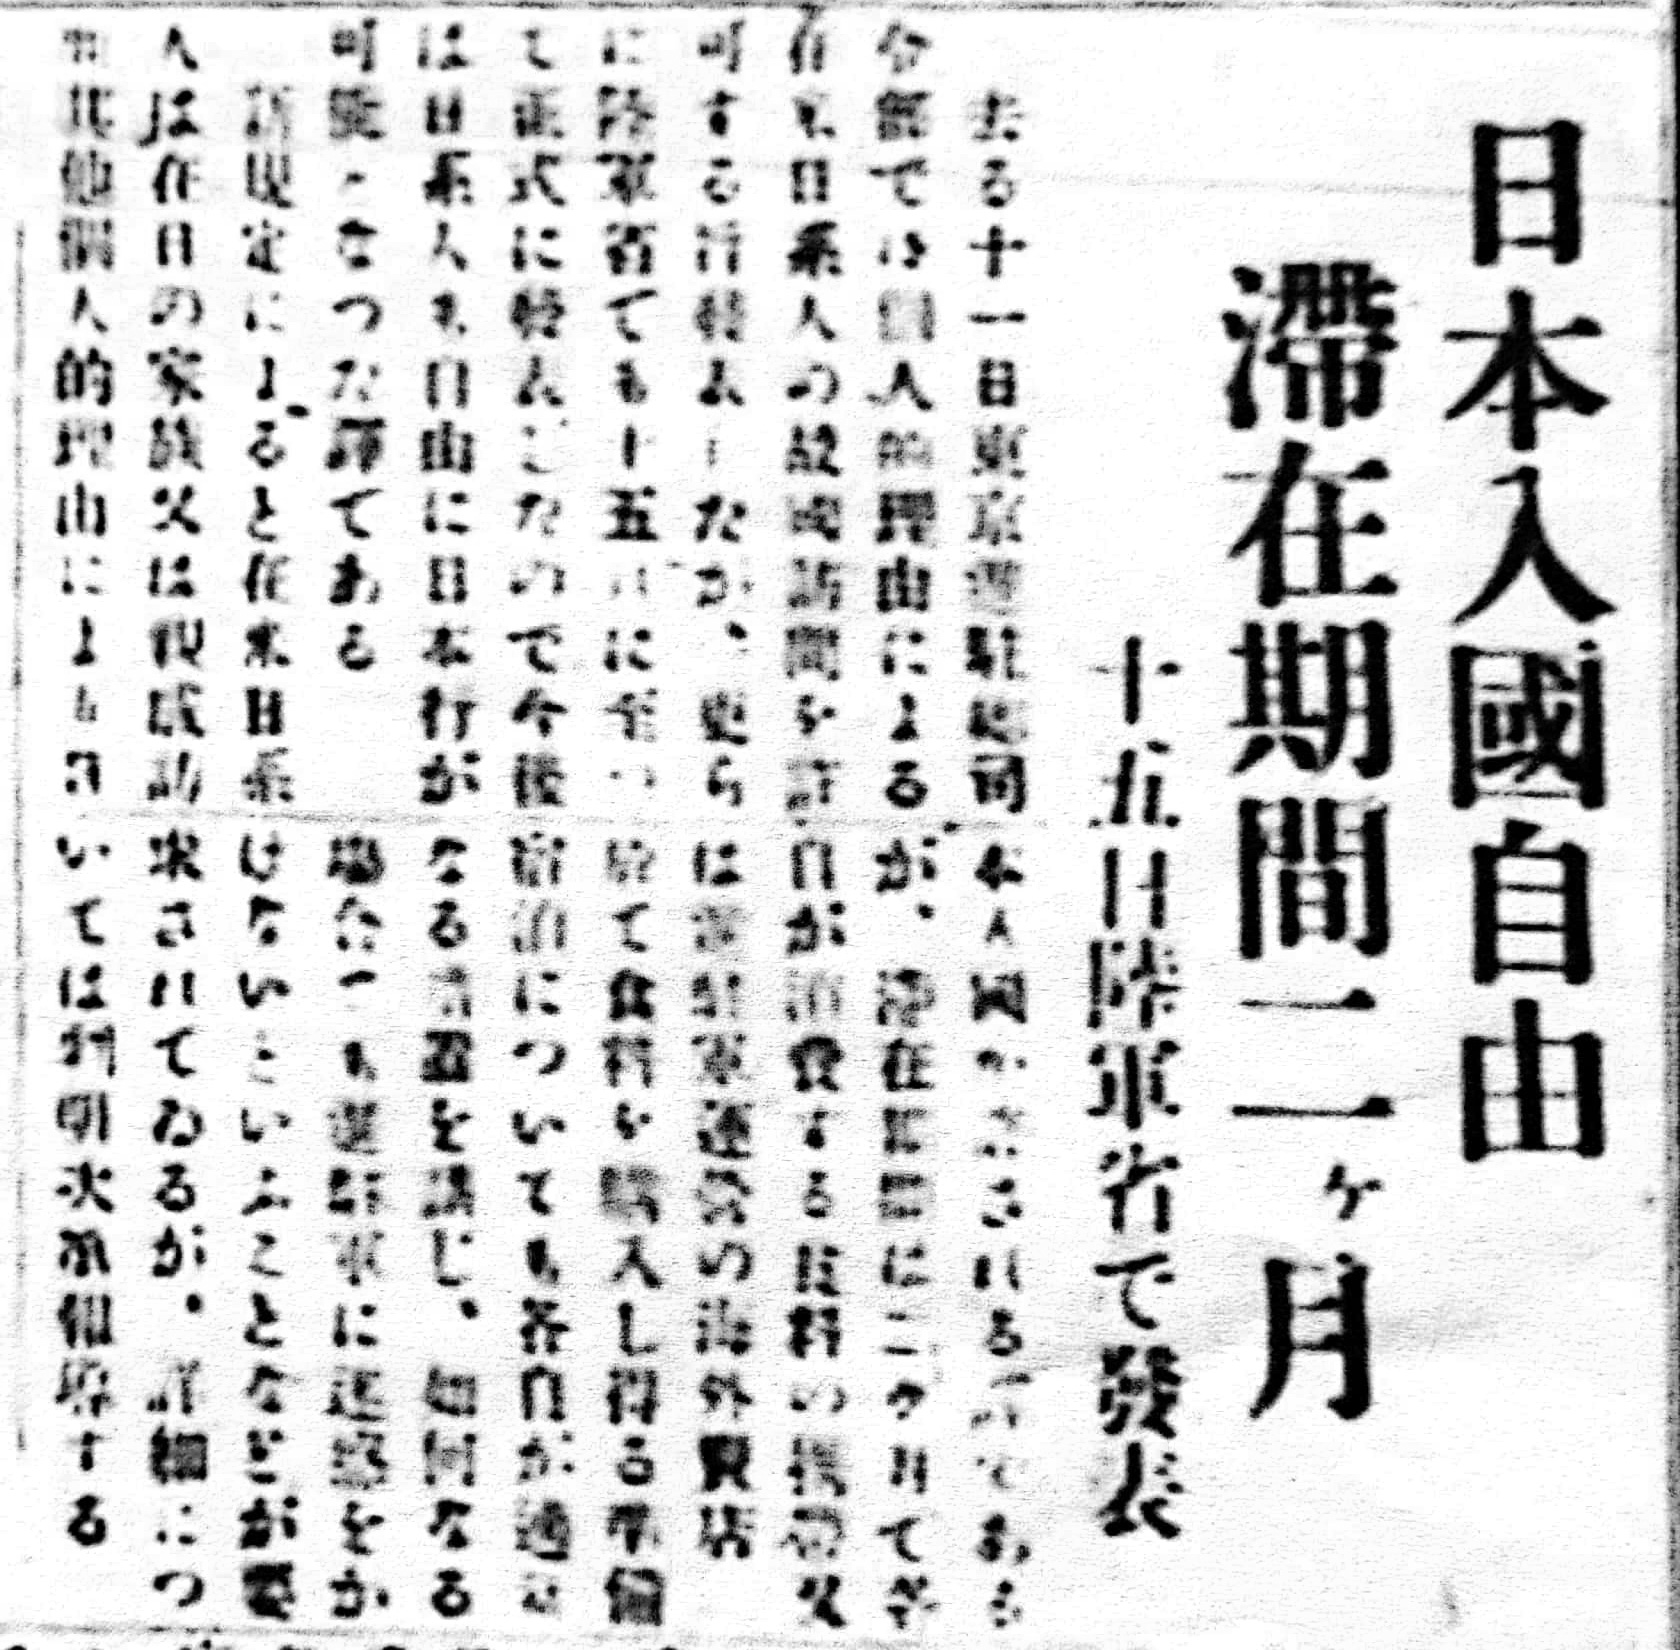 日本入國自由
滞在期間二ヶ月
十五日陸軍省で發表
去る十一日東京進駐軍司
令部では個人的理由による
在米日系人の故國訪問を許
可する旨發表したが、更ら
に陸軍省ても十五日に至つ
て正式に發表したので今後
は日系人も自由に日本行が
可能となつた譯てある
新規定によると在米日系
人は在日の家族又は親戚訪
問其他個人的理由により日
本入國がゆるされるのである
が、滞在期間は二ケ月て各
自が消費する食料の携帯又
は進駐軍經營の海外賣店
於て食料を購入し得る準備
宿泊についても各自が適當
なる措置を講じ、如何なる
場合ても進駐軍に迷惑をか
けないといふことなどが要
求されてゐるが、詳細につ
いては判明次第報導する